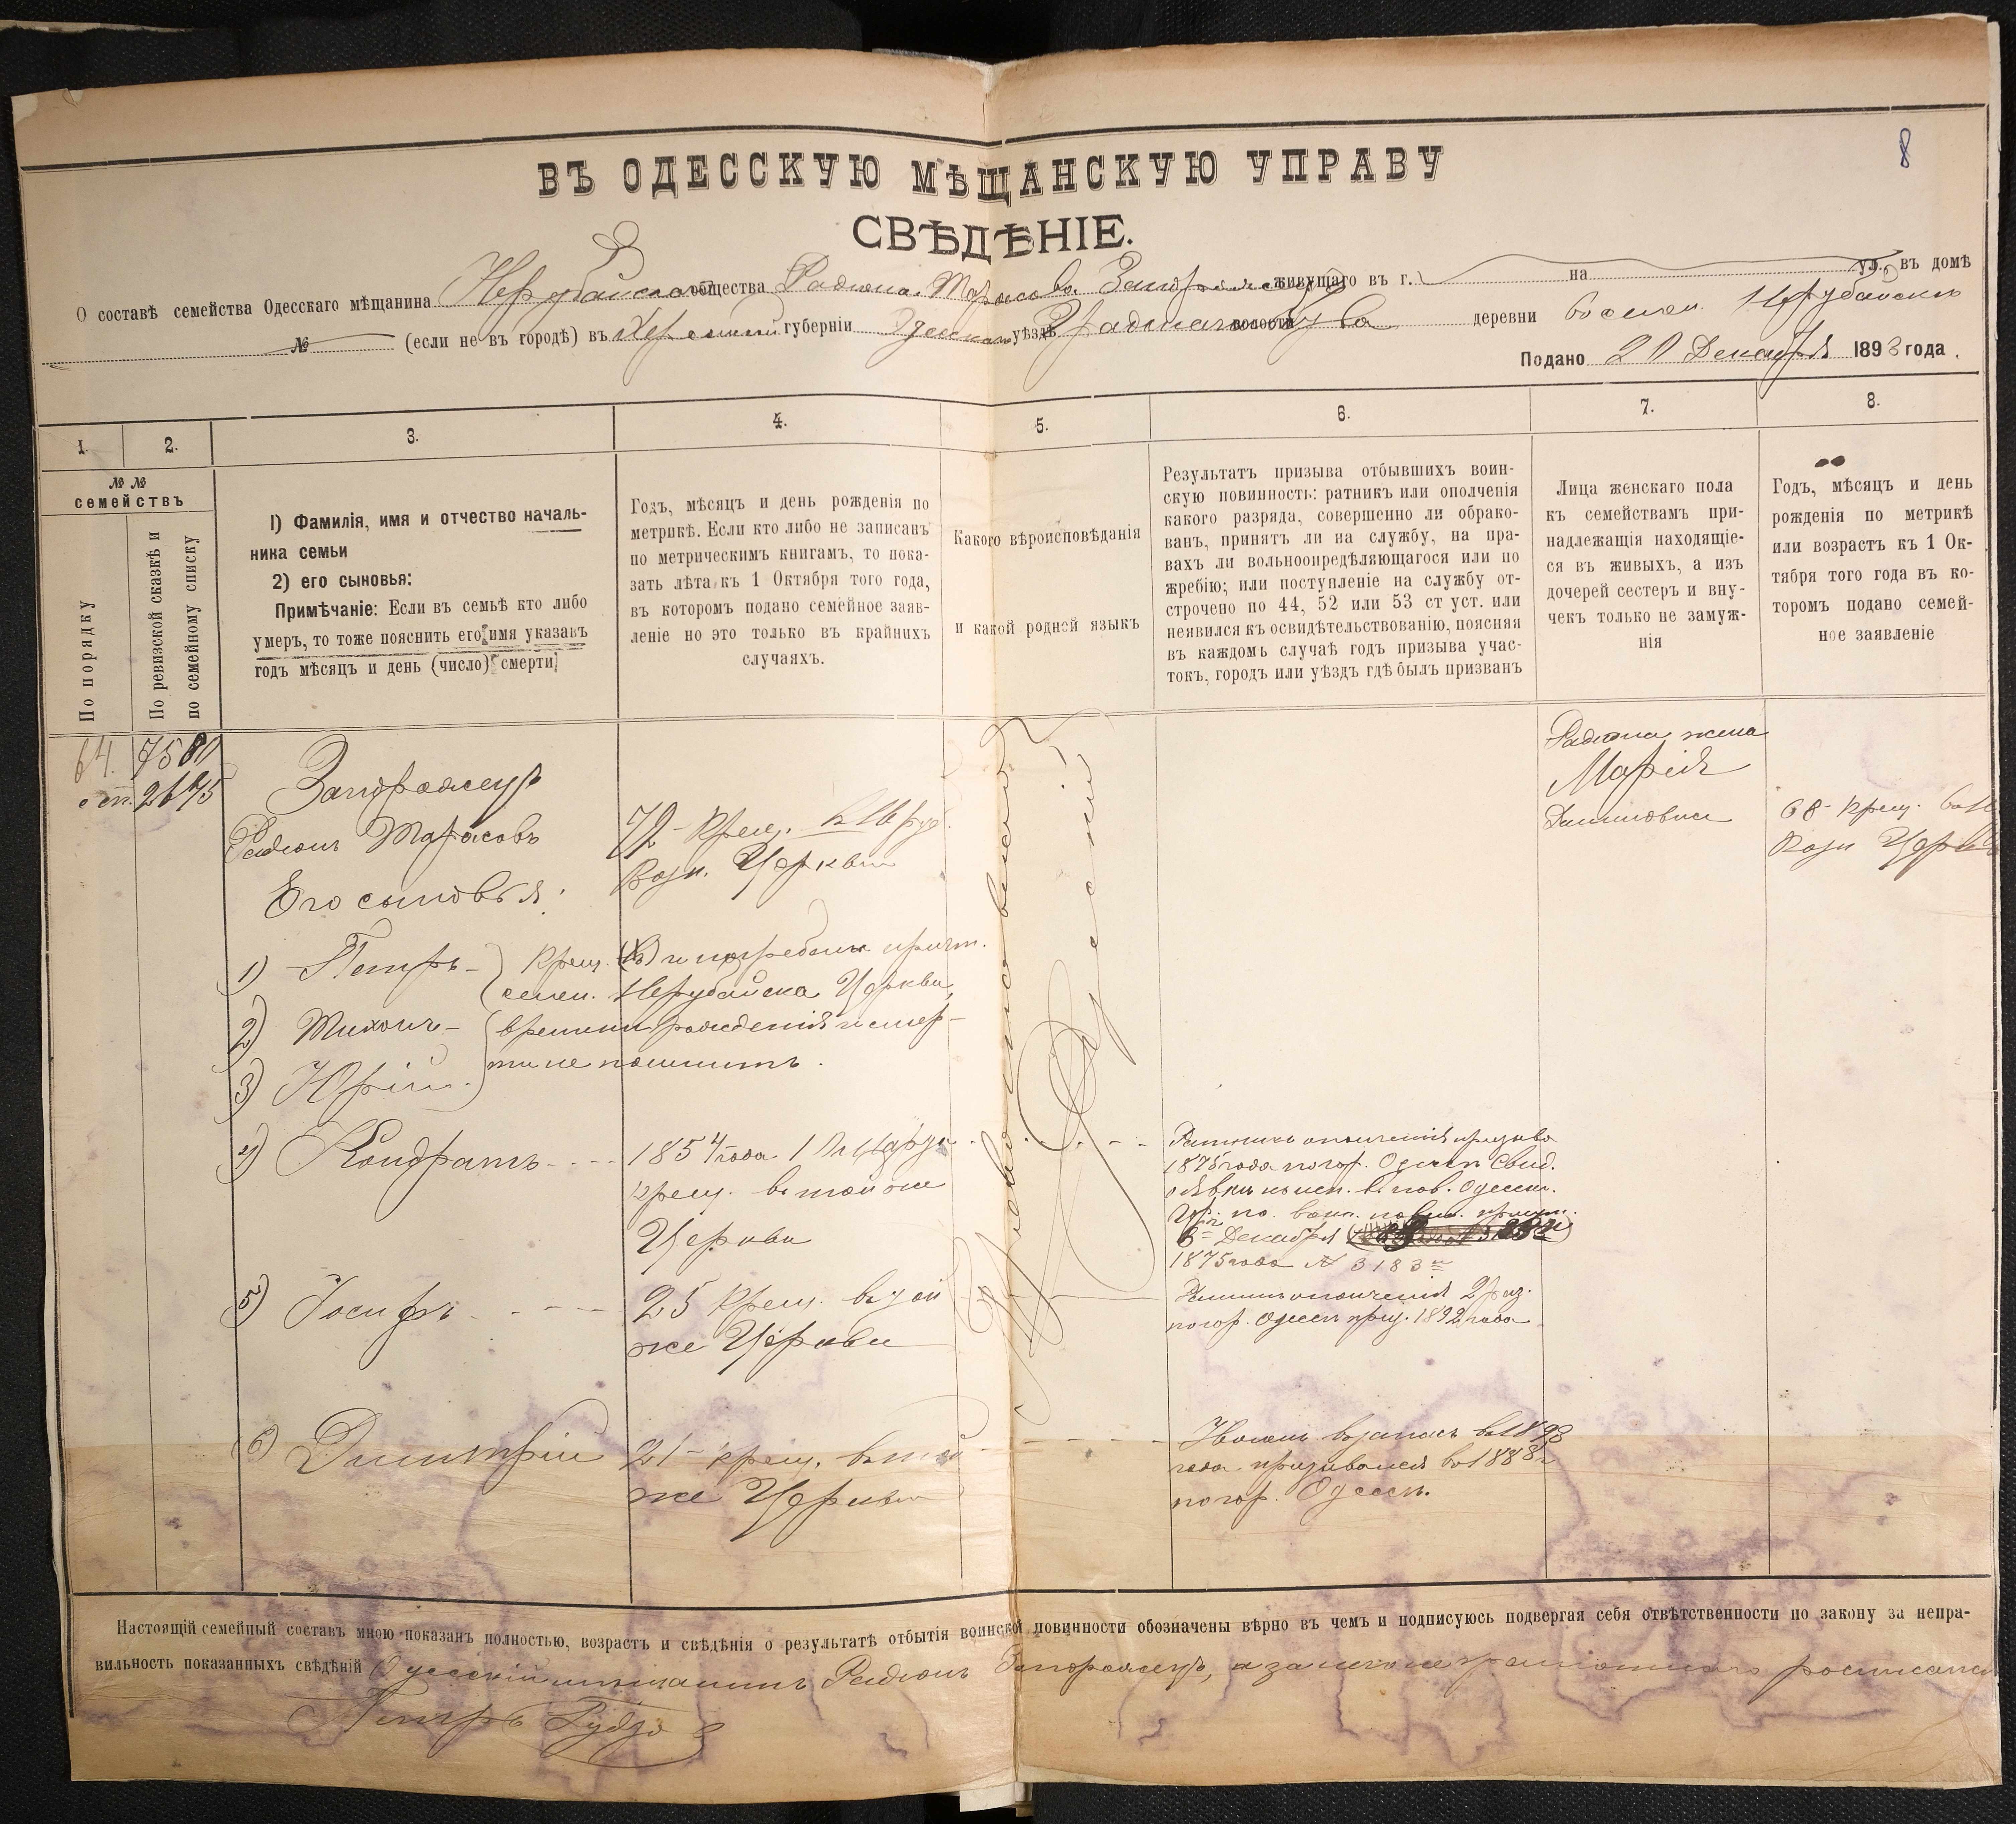 8
ВЪ ОДЕССКУЮ МѢЩАНСКУЮ УПРАВУ
СВѢДѢНІЕ.
О составѣ семейства Одесскаго мѣщанина Нерубайскаго общества Радіона Тарасова Запорожца живущаго въ г. на ул., въ домѣ
№ (если не въ городѣ) въ Херсонской губерніи Одесскомъ уѣздѣ волости деревни въ селен. Нерубайскъ
Подано 20 Декабря 1893 года.
1. 2. 3. 4. 5. 6. 7. 8.
№ №
семействъ
По порядку
По ревизской сказкѣ и
по семейному списку
I) Фамилія, имя и отчество началь-
ника семьи
2) его сыновья:
Примѣчаніе: Если въ семьѣ кто либо
умеръ, то тоже пояснить его имя указавъ
годъ мѣсяцъ и день (число) смерти
Годъ, мѣсяцъ и день рожденія по
метрикѣ. Если кто либо не записанъ
по метрическимъ книгамъ, то пока-
зать лѣта къ 1 Октября того года,
въ которомъ подано семейное заяв-
леніе но это только въ крайнихъ
случаяхъ.
Какого вѣроисповѣданія
и какой родной языкъ
Результатъ призыва отбывшихъ воин-
скую повинность: ратникъ или ополченія
какого разряда, совершенно ли обрако-
ванъ, принятъ ли на службу, на пра-
вахъ ли вольноопредѣляющагося или по
жребію; или поступленіе на службу от-
строчено по 44, 52 или 53 ст уст. или
неявился къ освидѣтельствованію, поясняя
въ каждомъ случаѣ годъ призыва учас-
токъ, городъ или уѣздъ гдѣ былъ призванъ
Лица женскаго пола
къ семействамъ при-
надлежащія находящіе-
ся въ живыхъ, а изъ
дочерей сестеръ и вну-
чекъ только не замуж-
нія
Годъ, мѣсяцъ и день
рожденія по метрикѣ
или возрастъ къ 1 Ок-
тября того года въ ко-
торомъ подано семей-
ное заявленіе
64. 7580
2675
Запорожецъ
Радіонъ Тарасовъ
Его сыновья:
72 - крещ. в Неруб.
Возн. Церкви
1) Петръ - крещ. и погребены причт.
селен. Нерубайска Церкви,
2) Тихонъ - времени рожденія и смер-
3) Юрій - ти не помнитъ.
4) Кондратъ - 1854 года 10 Марта
крещ. въ той же
Церкви
5) Іосифъ - 25 крещ. въ той
же Церкви
6) Димитрій 21 - крещ. въ той
же Церкви
Православнаго
Русскій
Ратникъ ополченія призыва
1875 года по гор. Одессѣ Свид.
по воин. повин.
6 Декабря
1875 года № 3183
Ратникъ ополченія 2 раз.
по гор. Одессѣ приз. 1892 года
въ запасъ въ 1893
года призывался въ 1888 г.
по гор. Одессѣ.
Радіона жена
Марія
68 - крещ. въ
Возн Церкви
Настоящій семейный составъ мною показанъ полностью, возрастъ и свѣдѣнія о результатѣ отбытія воинской повинности обозначены вѣрно въ чемъ и подписуюсь подвергая себя отвѣтственности по закону за непра-
вильность показанныхъ свѣдѣній Одесскій мѣщанинъ Радіонъ Запорожецъ, а за него неграмотнаго росписался
Петръ Гудзо